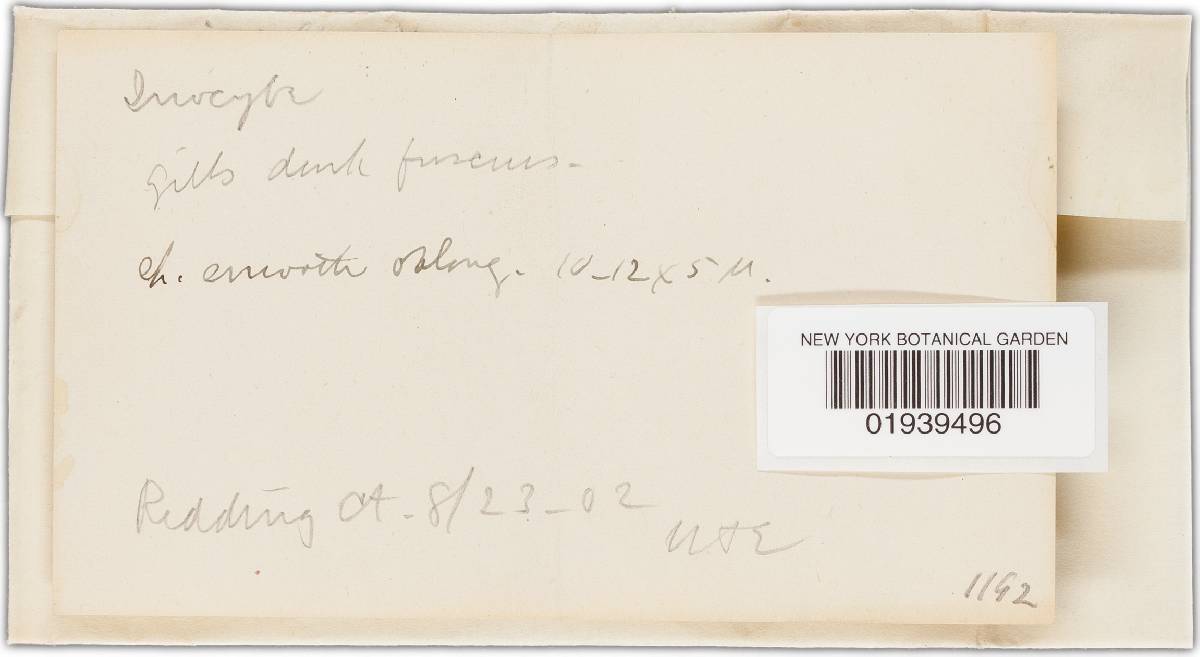 Inocybe
gills dark fuscous -
sp. smooth oblong. 10-12 x 5 µ.
NEW YORK BOTANICAL GARDEN
01939496
Redding Ct - 8/23 - 02
1192